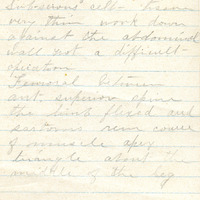 Subserous cell-
very thin work down
against the abdominal
wall not a difficult-
operation
Femoral between
ant. superior spine
the limb flexed and
sartorius course
of muscle apex
triangle about
middle of the leg